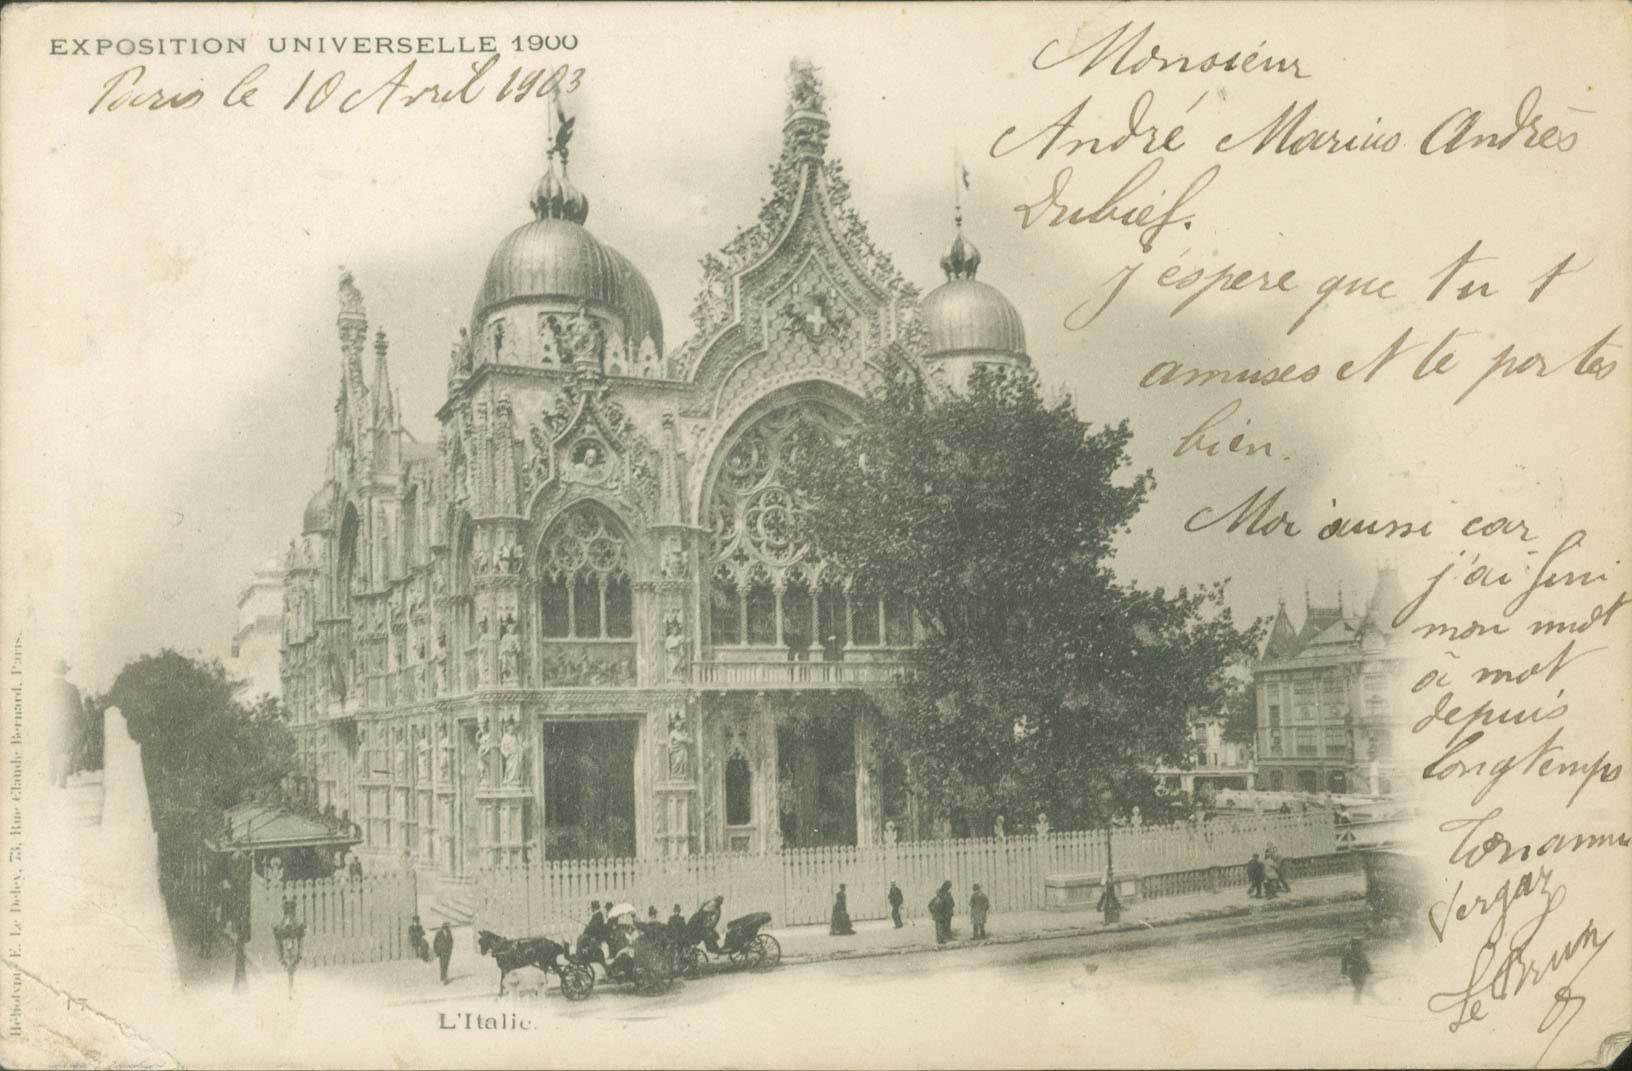 EXPOSITION UNIVERSELLE 1900
Paris le 10 Avril 1903
Monsieur
André Marius Andrès
Dubief.
j'éspere que tu t
amuses et te portes
bien.
Moi aussi car
j'ai fini
mon mot
à mot
depuis
longtemps
Vergaz
Le Brun
Héliotypie E. Le Deley, 73, Rue Claude Bernard, Paris.
17
L'Italie.